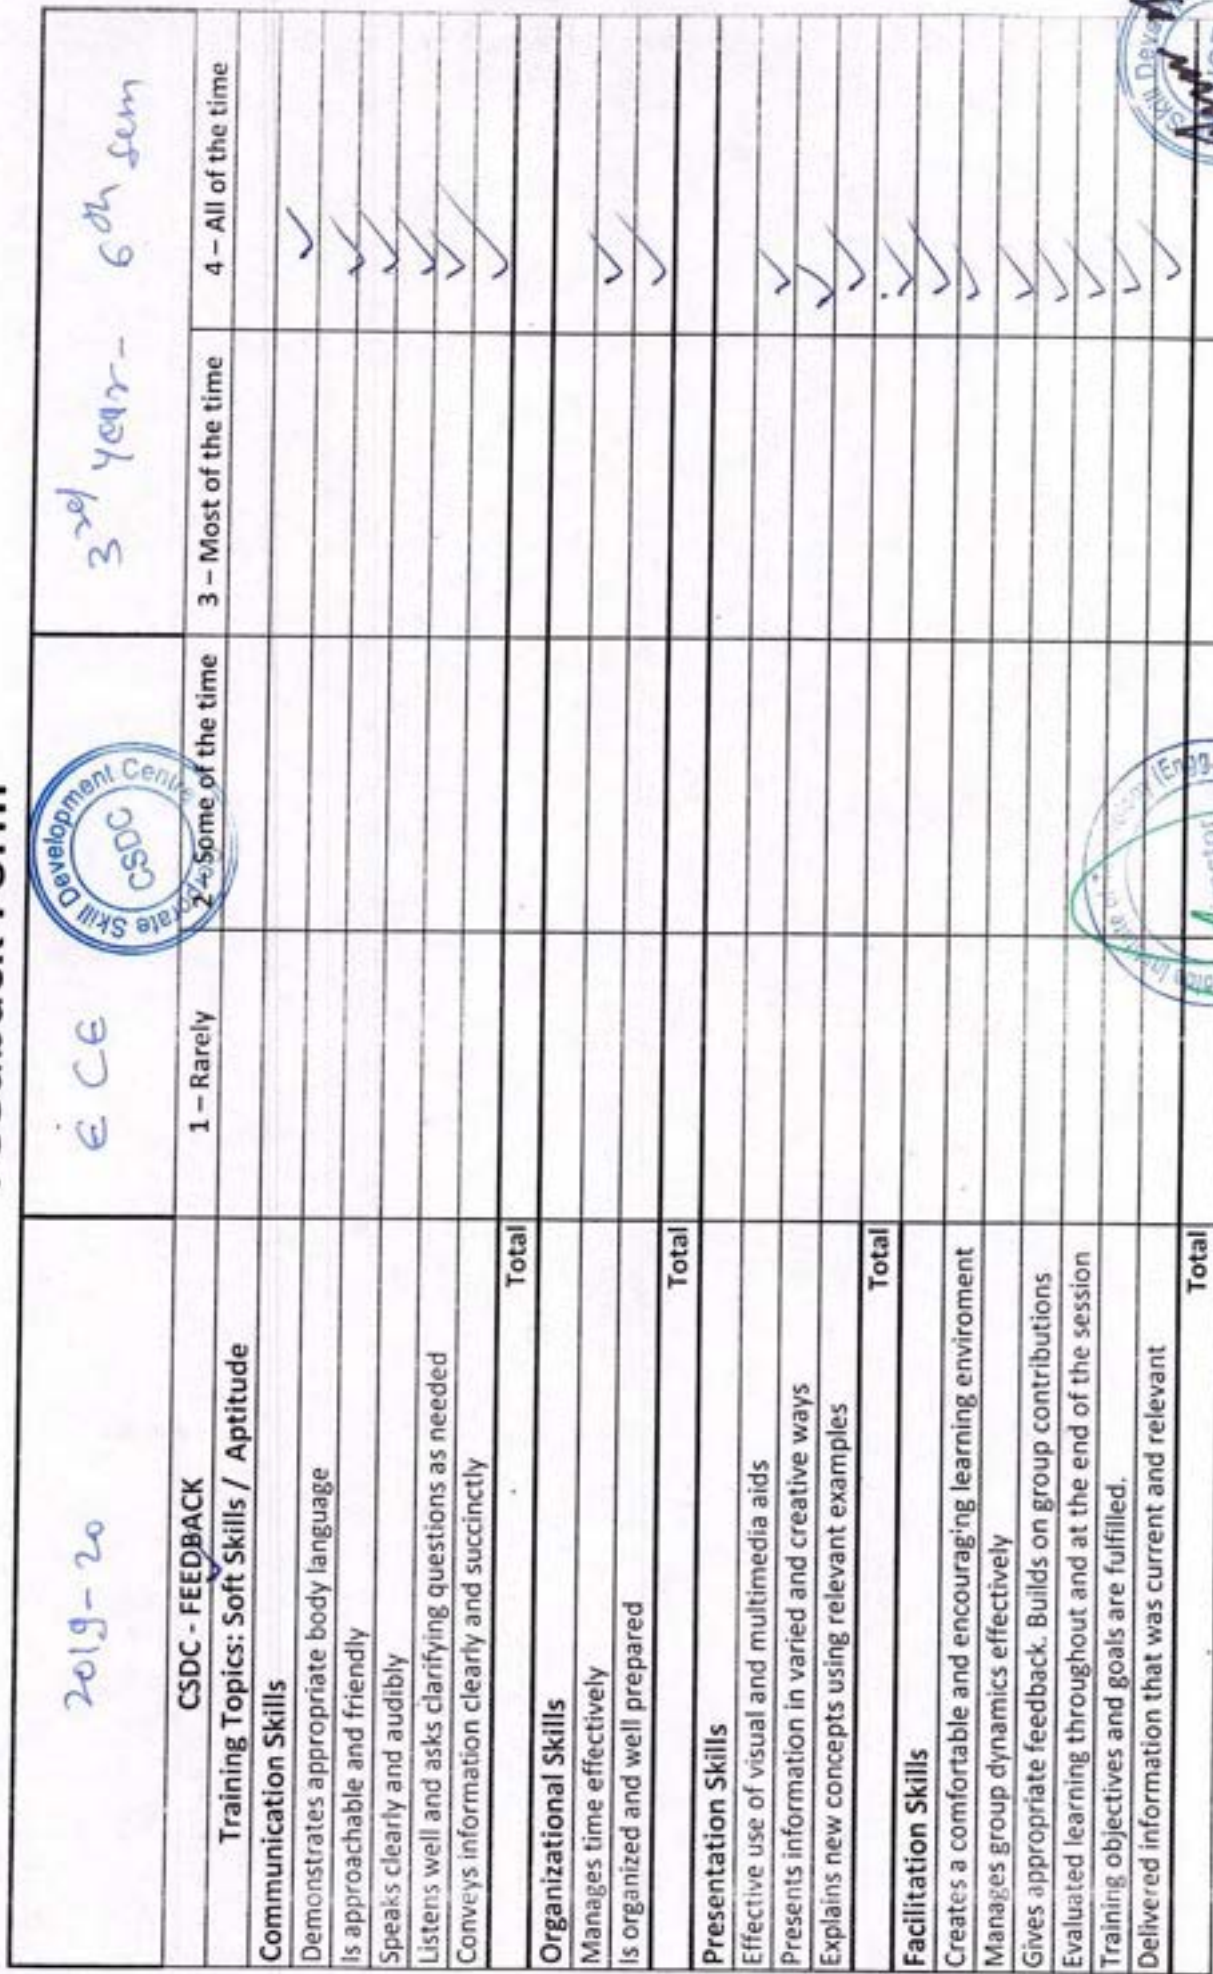 2019-20 ECE 3rd Year - 6th Sem
CSDC - FEEDBACK 1 – Rarely 2 – Some of the time 3 – Most of the time 4 – All of the time
Training Topics: Soft Skills / Aptitude
Communication Skills
Demonstrates appropriate body language ✓
Is approachable and friendly ✓
Speaks clearly and audibly ✓
Listens well and asks clarifying questions as needed ✓
Conveys information clearly and succinctly ✓
Total
Organizational Skills
Manages time effectively ✓
Is organized and well prepared ✓
Total
Presentation Skills
Effective use of visual and multimedia aids ✓
Presents information in varied and creative ways ✓
Explains new concepts using relevant examples ✓
Total
Facilitation Skills
Creates a comfortable and encouraging learning enviroment ✓
Manages group dynamics effectively ✓
Gives appropriate feedback. Builds on group contributions ✓
Evaluated learning throughout and at the end of the session ✓
Training objectives and goals are fulfilled. ✓
Delivered information that was current and relevant ✓
Total
Corporate Skill Development Centre
CSDC
Skill Deve
(Engg.